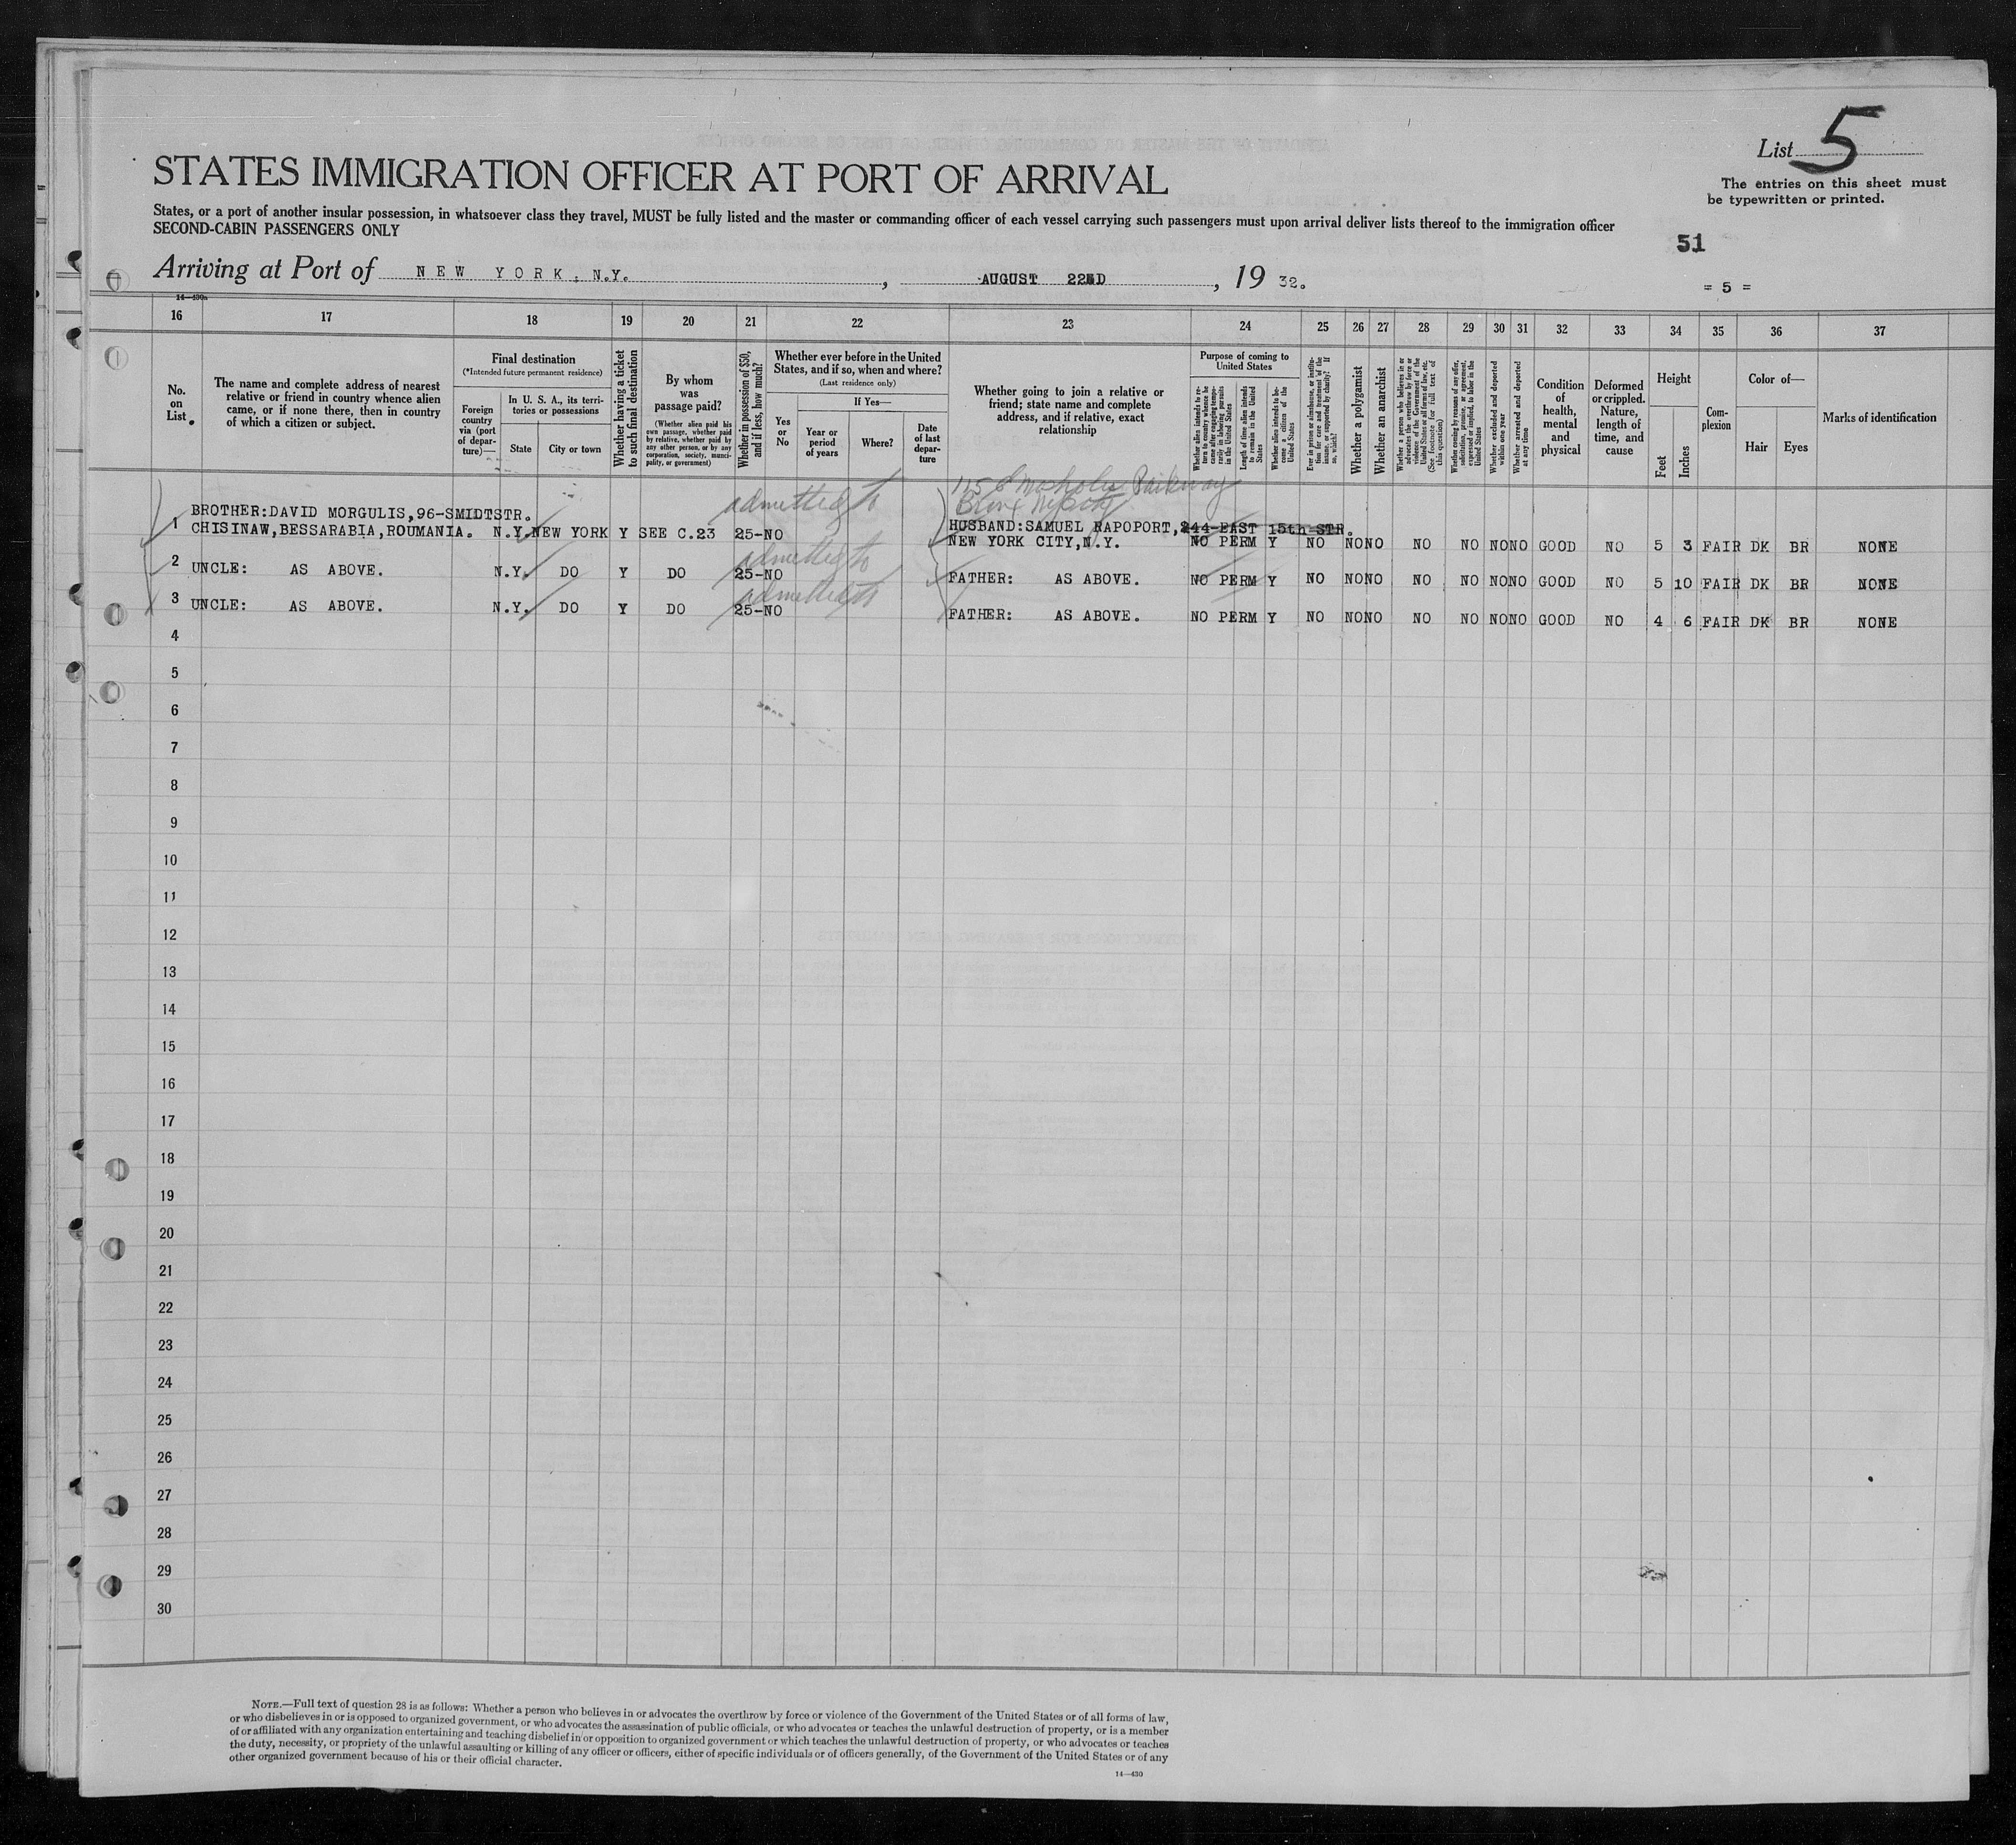 List 5
STATES IMMIGRATION OFFICER AT PORT OF ARRIVAL
The entries on this sheet must
be typewritten or printed.
States, or a port of another insular possession, in whatsoever class they travel, MUST be fully listed and the master or commanding officer of each vessel carrying such passengers must upon arrival deliver lists thereof to the immigration officer
SECOND-CABIN PASSENGERS ONLY
51
Arriving at Port of NEW YORK, N.Y., AUGUST 22ND, 19 32.
= 5 =
14—430a
16 17 18 19 20 21 22 23 24 25 26 27 28 29 30 31 32 33 34 35 36 37
No. on List
The name and complete address of nearest relative or friend in country whence alien came, or if none there, then in country of which a citizen or subject.
Final destination
(*Intended future permanent residence)
Foreign country via (port of departure)—
In U. S. A., its territories or possessions
State
City or town
Whether having a ticket to such final destination
By whom was passage paid?
(Whether alien paid his own passage, whether paid by relative, whether paid by any other person, or by any corporation, society, municipality, or government)
Whether in possession of $50, and if less, how much?
Whether ever before in the United States, and if so, when and where?
(Last residence only)
Yes or No
If Yes—
Year or period of years
Where?
Date of last departure
Whether going to join a relative or friend; state name and complete address, and if relative, exact relationship
Purpose of coming to United States
Whether alien intends to return to country whence he came after engaging temporarily in laboring pursuits in the United States
Length of time alien intends to remain in the United States
Whether alien intends to become a citizen of the United States
Ever in prison or almshouse, or institution for care and treatment of the insane, or supported by charity? If so, which?
Whether a polygamist
Whether an anarchist
Whether a person who believes in or advocates the overthrow by force or violence of the Government of the United States or all forms of law, etc. (See footnote for full text of this question)
Whether coming by reason of any offer, solicitation, promise, or agreement, expressed or implied, to labor in the United States
Whether excluded and deported within one year
Whether arrested and deported at any time
Condition of health, mental and physical
Deformed or crippled. Nature, length of time, and cause
Height
Feet
Inches
Complexion
Color of—
Hair
Eyes
Marks of identification
admitted to
115 E Mosholu Parkway
Bronx
BROTHER:DAVID MORGULIS,96-SMIDTSTR.
1 CHISINAW,BESSARABIA,ROUMANIA. N.Y. NEW YORK Y SEE C.23 25-NO HUSBAND:SAMUEL RAPOPORT,244-EAST 15th-STR.
NEW YORK CITY,N.Y. NO PERM Y NO NO NO NO NO NO NO GOOD NO 5 3 FAIR DK BR NONE
admitted to
2 UNCLE: AS ABOVE. N.Y. DO Y DO 25-NO FATHER: AS ABOVE. NO PERM Y NO NO NO NO NO NO NO GOOD NO 5 10 FAIR DK BR NONE
admitted to
3 UNCLE: AS ABOVE. N.Y. DO Y DO 25-NO FATHER: AS ABOVE. NO PERM Y NO NO NO NO NO NO NO GOOD NO 4 6 FAIR DK BR NONE
4
5
6
7
8
9
10
11
12
13
14
15
16
17
18
19
20
21
22
23
24
25
26
27
28
29
30
NOTE.—Full text of question 28 is as follows: Whether a person who believes in or advocates the overthrow by force or violence of the Government of the United States or of all forms of law,
or who disbelieves in or is opposed to organized government, or who advocates the assassination of public officials, or who advocates or teaches the unlawful destruction of property, or is a member
of or affiliated with any organization entertaining and teaching disbelief in or opposition to organized government or which teaches the unlawful destruction of property, or who advocates or teaches
the duty, necessity, or propriety of the unlawful assaulting or killing of any officer or officers, either of specific individuals or of officers generally, of the Government of the United States or of any
other organized government because of his or their official character.
14—430